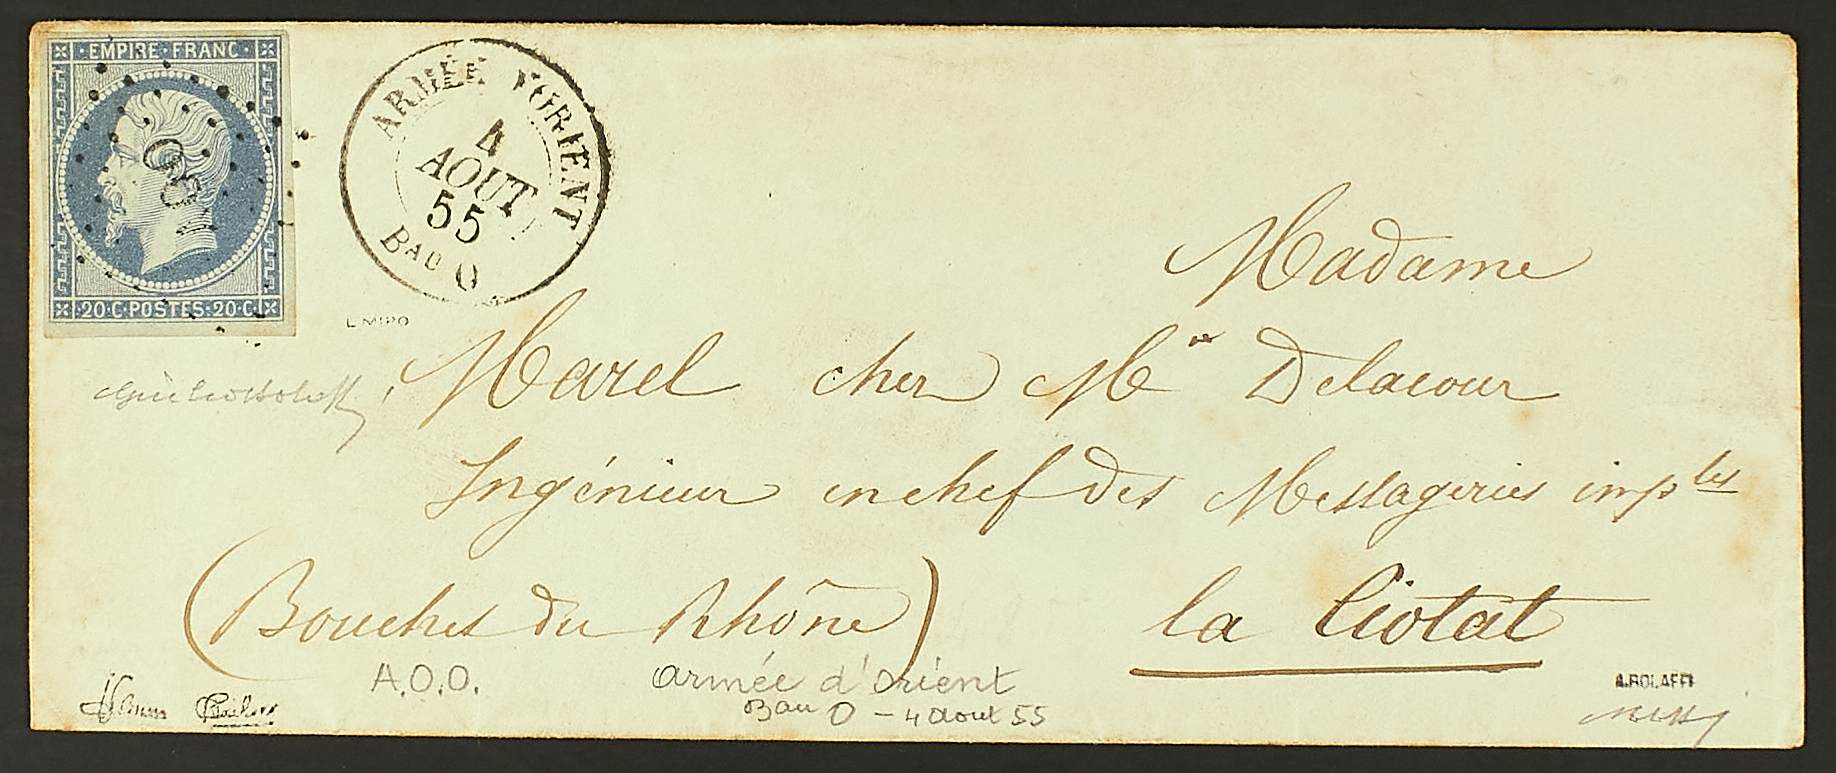 · EMPIRE · FRANC ·
20·C·POSTES·20·C·
ARMÉE D'ORIENT
4
AOUT
55
BAU O
L. MIRO
Madame
Marel cher Mr Delacour
Ingénieur en chef des Messageries implles
(Bouches du Rhône) la Ciotat
A.O.O.
armée d'orient
Bau O – 4 aout 55
A.BOLAFFI